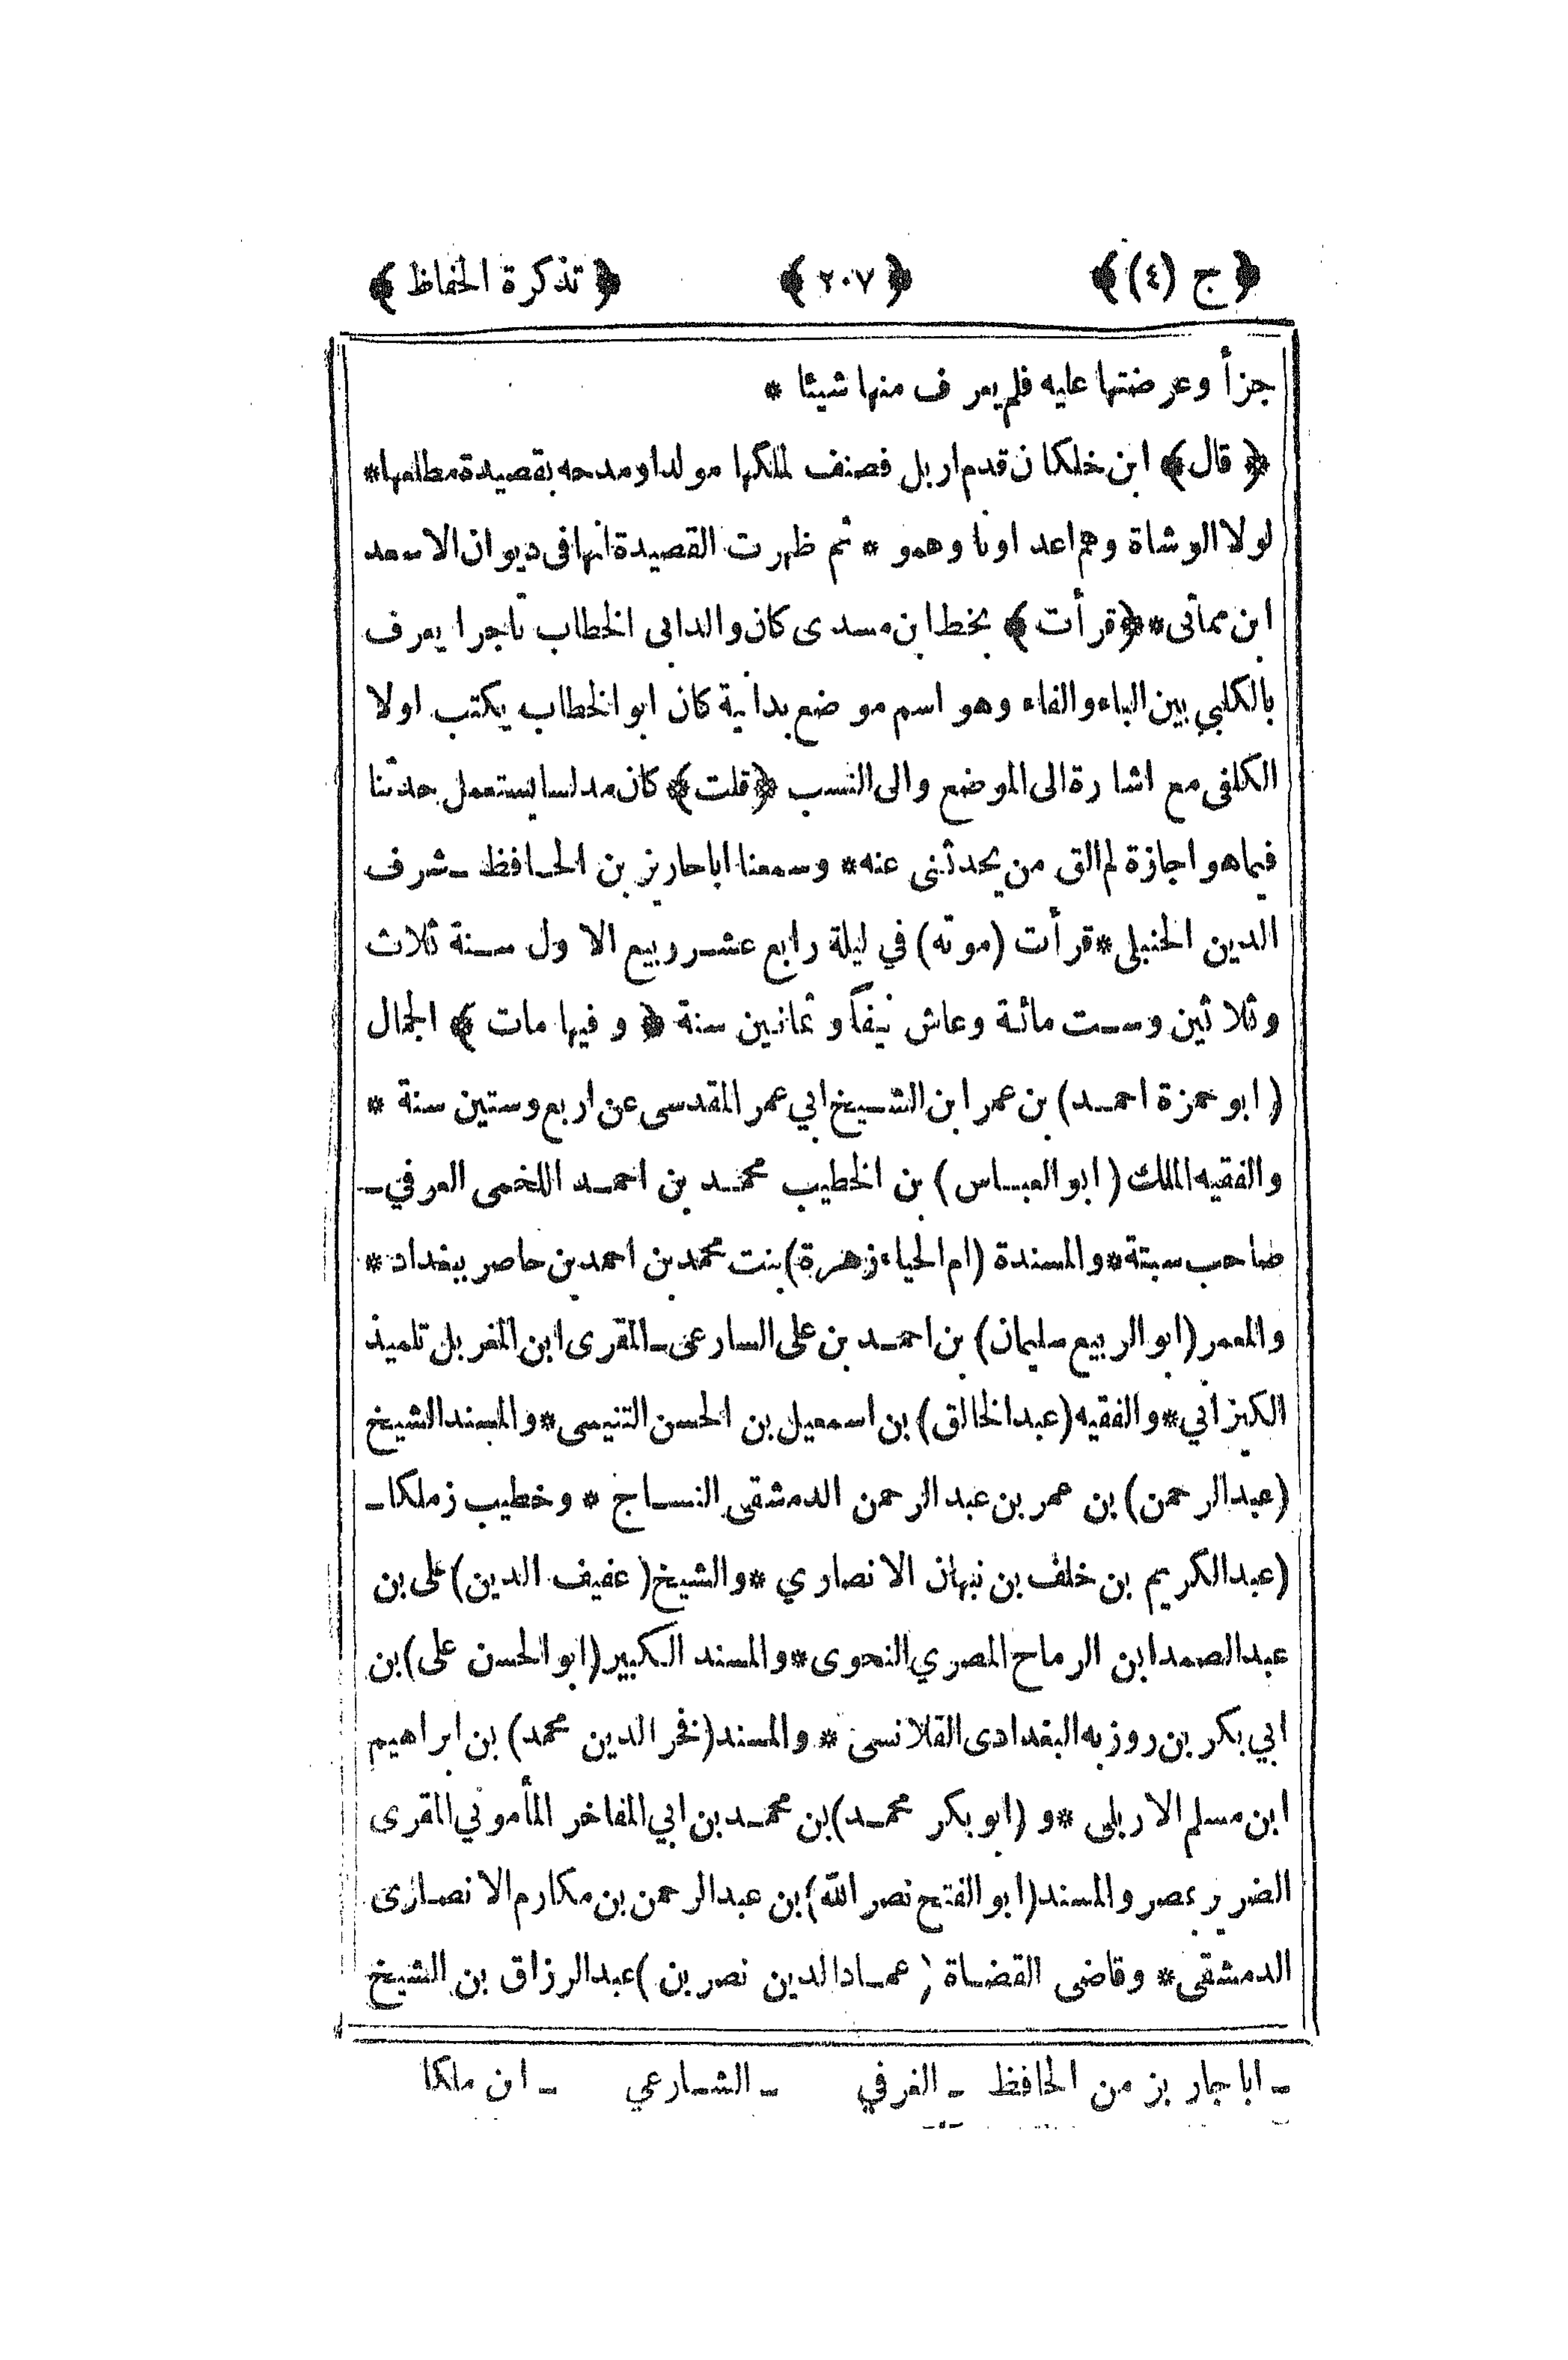 ﴿ ج (٤) ﴾ ﴿ ٢٠٧ ﴾ ﴿ تذكرة الحفاظ ﴾
جزأ وعرضتها عليه فلم يعرف منها شيئا *
﴿ قال ﴾ ابن خلكان قدم اربل فصنف لملكها مولدا ومدحه بقصيدة مطلعها *
لولا الوشاة وهم اعداونا وهمو * ثم ظهرت القصيدة انها فى ديوان الاسعد
ابن مماتى * ﴿ قرأت ﴾ بخط ابن مسدى كان والد ابى الخطاب تاجرا يعرف
بالكلبي بين الباء والفاء وهو اسم موضع بدانية كان ابو الخطاب يكتب اولا
الكلفى مع اشارة الى الموضع والى النسب ﴿ قلت ﴾ كان مدلسا يستعمل حدثنا
فيما هو اجازة لم الق من يحدثنى عنه * وسمعنا اباحاريز بن الحافظ ـ شرف
الدين الحنبلى * قرأت (موته) في ليلة رابع عشر ربيع الاول سنة ثلاث
وثلاثين وست مائة وعاش نيفاً وثمانين سنة ﴿ وفيها مات ﴾ الجمال
(ابو حمزة احمد) بن عمر ابن الشيخ ابي عمر المقدسى عن اربع وستين سنة *
والفقيه الملك (ابو العباس) بن الخطيب محمد بن احمد اللخمى العرفي ـ
صاحب سبتة * والمسندة (ام الحياء زهرة) بنت محمد بن احمد بن حاصر ببغداد *
والمعمر (ابو الربيع سليمان) بن احمد بن على السارعى ـ المقرى ابن المغربل تلميذ
الكيزاني * والفقيه (عبد الخالق) بن اسمعيل بن الحسن التنيسى * والمسند الشيخ
(عبد الرحمن) بن عمر بن عبد الرحمن الدمشقى النساج * وخطيب زملكا ـ
(عبد الكريم بن خلف بن نبهان الانصاري * والشيخ (عفيف الدين) على بن
عبد الصمد ابن الرماح المصري النحوى * والمسند الكبير (ابو الحسن على) بن
ابي بكر بن روزبه البغدادى القلانسى * والمسند (فخر الدين محمد) بن ابراهيم
ابن مسلم الاربلى * و (ابو بكر محمد) بن محمد بن ابي المفاخر المأموني المقرى
الضرير بمصر والمسند (ابو الفتح نصر الله) بن عبد الرحمن بن مكارم الانصارى
الدمشقى * وقاضى القضاة (عماد الدين نصر بن) عبد الرزاق بن الشيخ
ـ ابا جاريز من الحافظ ـ الغرفي ـ الشارعي ـ ابن ملكا